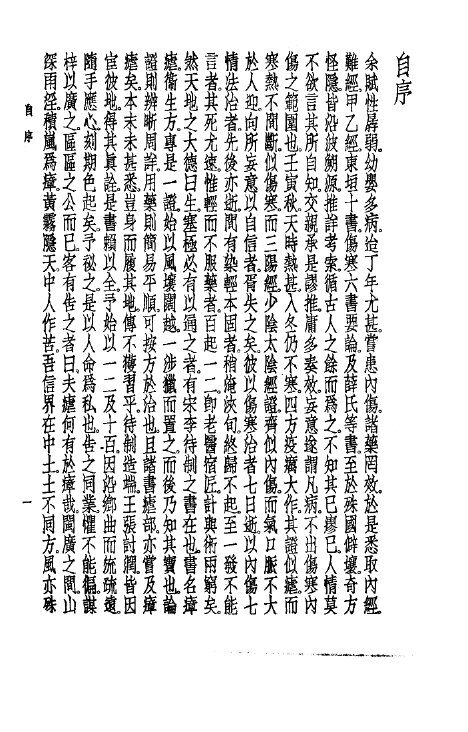 自序
余賦性孱弱幼嬰多病迨丁年尤甚嘗患內傷諸藥罔效於是悉取內經
難經甲乙經東垣十書傷寒六書要論及薛氏等書至於殊國僻壤奇方
怪隱皆沿波朔源推詳考案循古人之餘而爲之不知其已瘳已人情莫
不欲言其所自知交親承是謬推庸多奏效妄意遂謂凡病不出傷寒內
傷之範圍也壬寅秋天時熱甚入冬仍不寒四方疫癘大作其證似瘧而
寒熱不間斷似傷寒而三陽經少陰太陰經證齊似內傷而氣口脈不大
於人迎向所妄意以自信者胥失之矣彼以傷寒治者七日逝以內傷七
情法治者先後亦逝間有染輕本固者稍俺浹旬終歸不起至一發不能
言者其死尤速惟輕而不服藥者百起一二卽老醫宿匠計與術兩窮矣
然天地之大德曰生塞極必有以通之者有宋李待制之書在也書名瘴
瘧衞生方專是一證始以風壤闊越一涉獵而置之而後乃知其寶也論
證則辨晰周詳用藥則簡易平順可按方於治也且諸書瘧部亦嘗及瘴
瘧矣本末未甚悉豈身而履其地傳不獲習乎待制造端王張討潤皆因
宦彼地得其眞詮是書賴以全予始以一二及十百因沿鄉曲而旒琉遠
隨手應心刻期色起矣予秘之是以人命爲私也告之同業懼不能徧謀
梓以廣之區區之公而已客有告之者曰夫瘧何有於瘴哉閩廣之間山
深雨淫積嵐爲瘴黃霧隱天中人作苦吾信界在中土土不同方風亦殊
自序
一